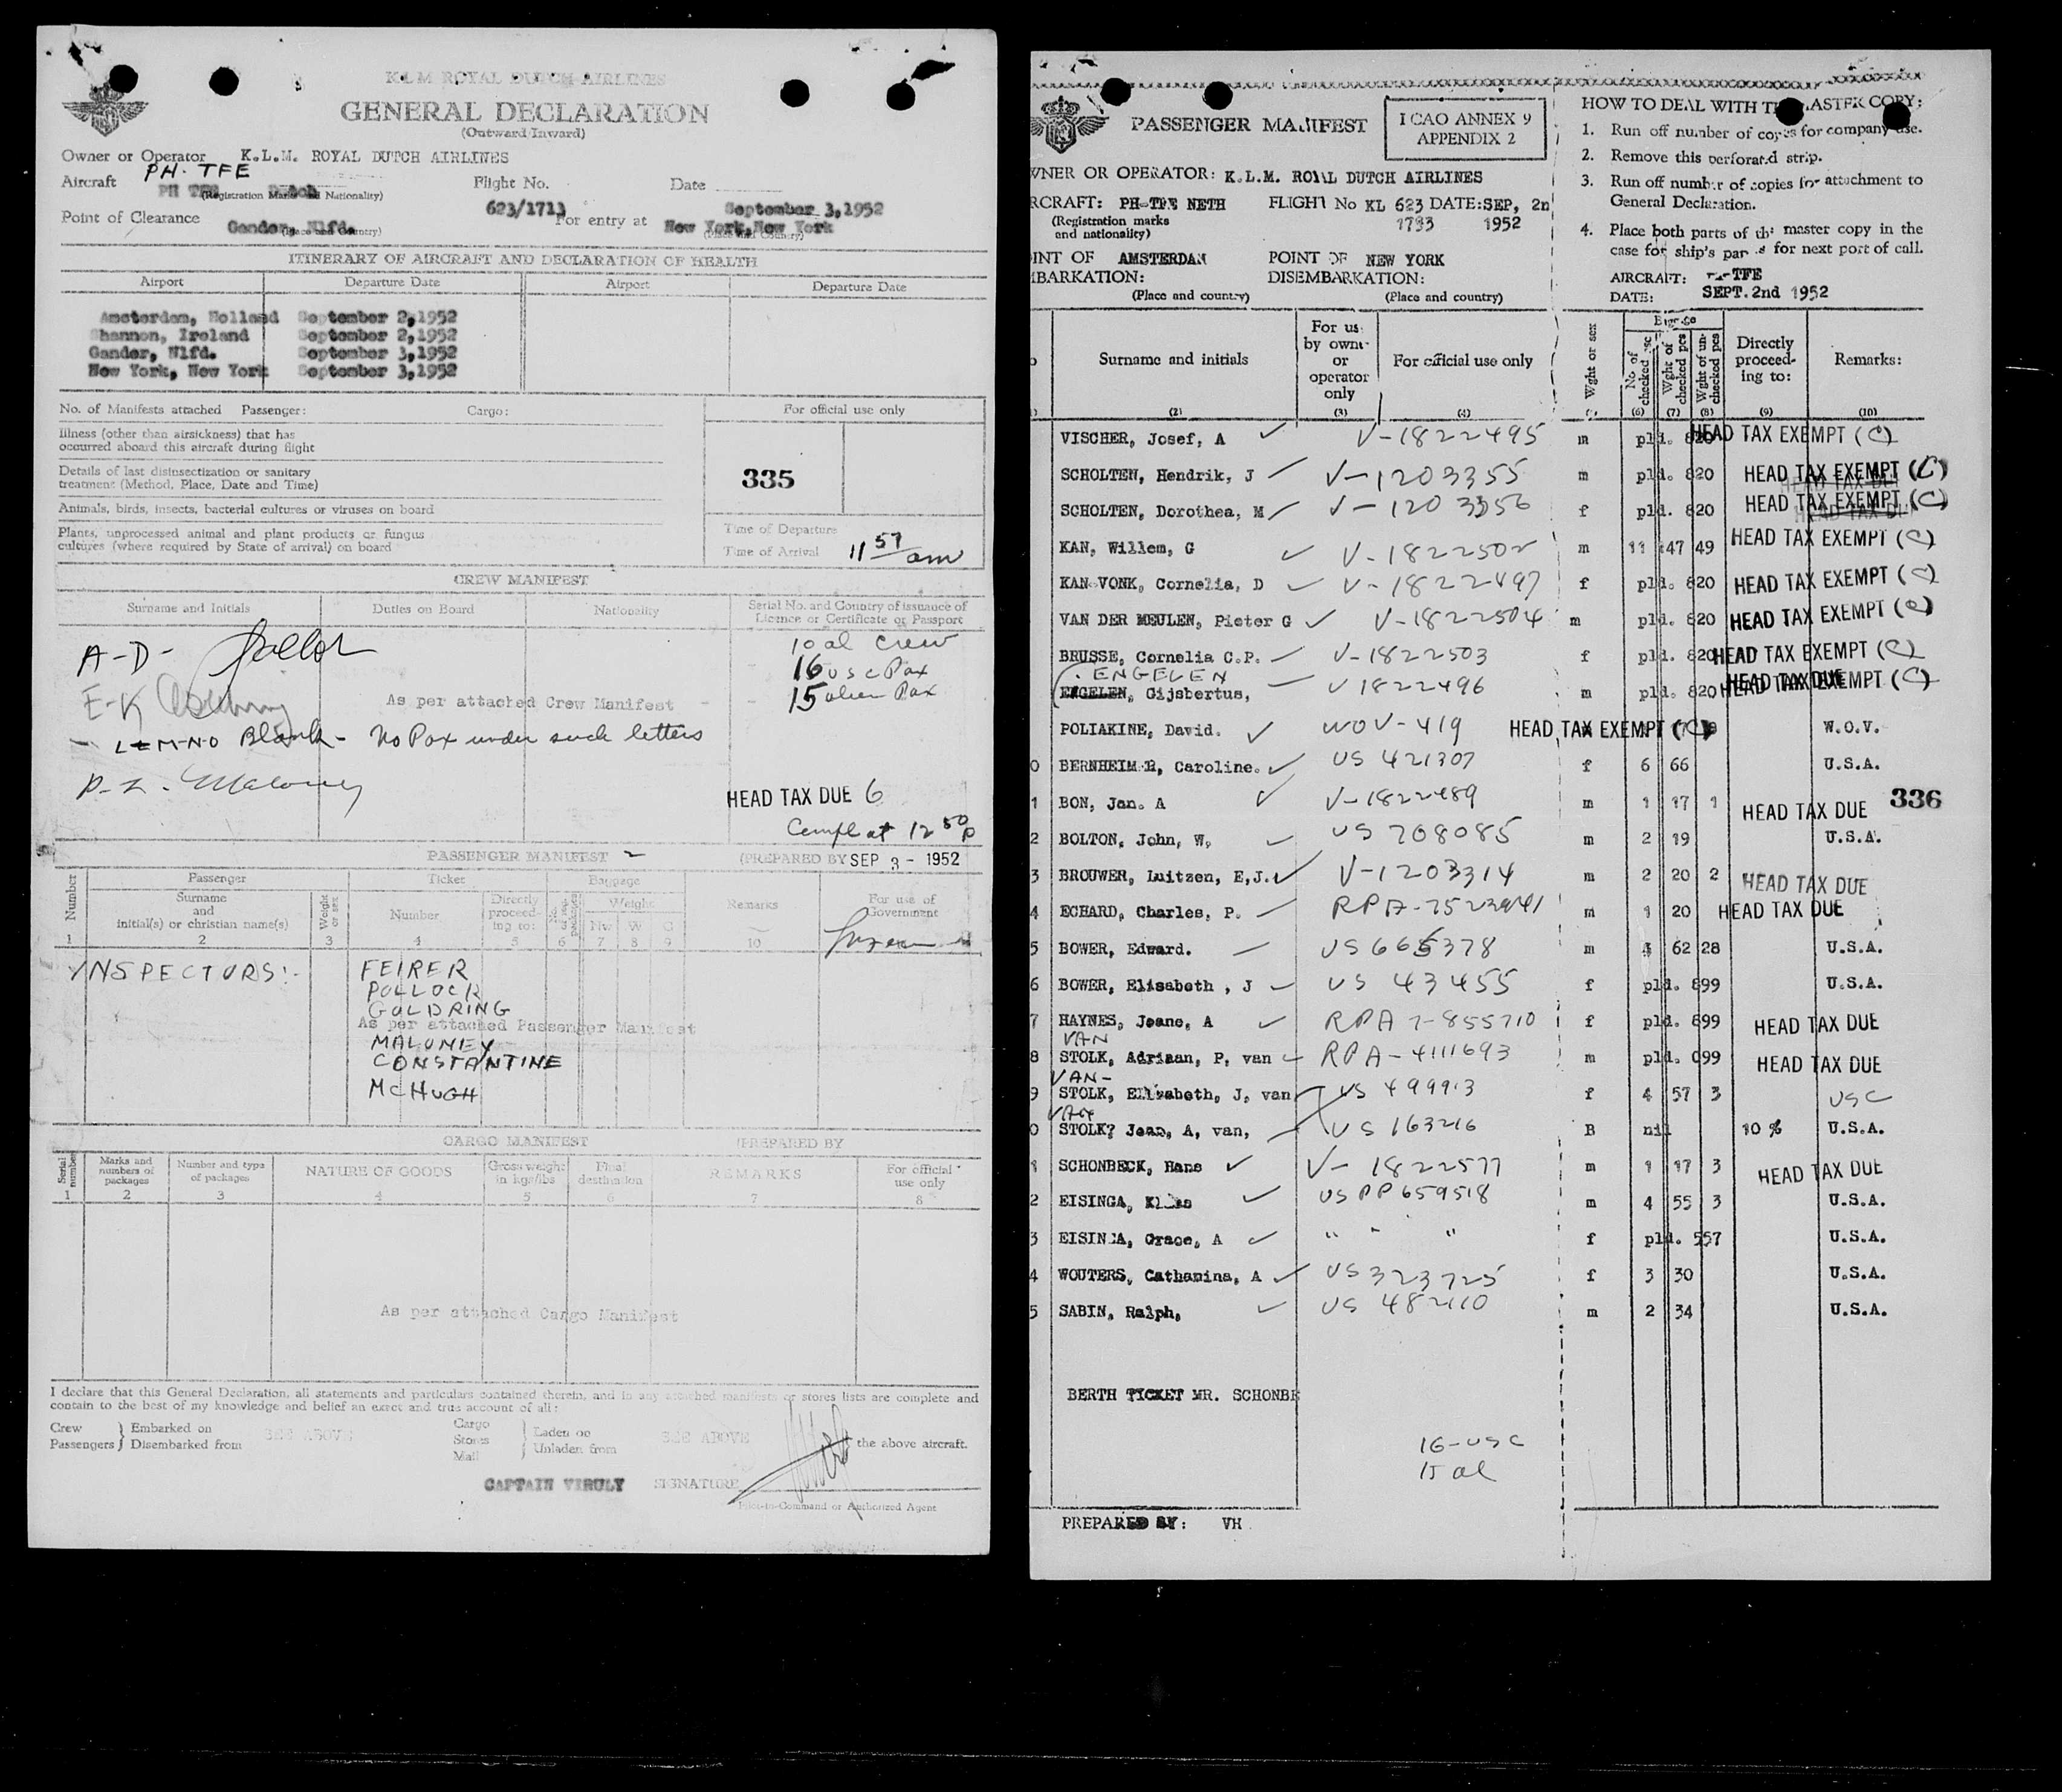 K.L.M ROYAL DUTCH AIRLINES
GENERAL DECLARATION
(Outward/Inward)
Owner or Operator K.L.M. ROYAL DUTCH AIRLINES
PH-TFE
Aircraft PH TFE Dutch Flight No. Date
(Registration Marks and Nationality)
623/1713 September 3,1952
Point of Clearance Gander, Nlfd. For entry at New York,New York
(Place and Country) (Place and Country)
ITINERARY OF AIRCRAFT AND DECLARATION OF HEALTH
Airport Departure Date Airport Departure Date
Amsterdam, Holland September 2,1952
Shannon, Ireland September 2,1952
Gander, Nlfd. September 3,1952
New York, New York September 3,1952
No. of Manifests attached Passenger: Cargo: For official use only
Illness (other than airsickness) that has
occurred aboard this aircraft during flight
Details of last disinsectization or sanitary
treatment (Method, Place, Date and Time)
335
Animals, birds, insects, bacterial cultures or viruses on board
Plants, unprocessed animal and plant products or fungus
cultures (where required by State of arrival) on board
Time of Departure
Time of Arrival 11 57 am
CREW MANIFEST
Surname and Initials Duties on Board Nationality Serial No. and Country of issuance of
Licence or Certificate or Passport
A-D-
E-K
As per attached Crew Manifest
10 al crew
16 usc Pax
15 alien Pax
- L-M-N-O Blank - No Pax under such letters
P-Z- Maloney
HEAD TAX DUE 6
Compl at 12 50 p
PASSENGER MANIFEST (PREPARED BY SEP 3 - 1952
Number Passenger Ticket Baggage Remarks For use of
Government
Surname
and
initial(s) or christian name(s) Weight or sex Number Directly
proceed-
ing to: Weight
Nw W G
1 2 3 4 5 6 7 8 9 10
INSPECTORS:-
FEIRER
POLLOCK
GOLDRING
As per attached Passenger Manifest
MALONEY
CONSTANTINE
McHUGH
CARGO MANIFEST (PREPARED BY
Serial number Marks and
numbers of
packages Number and type
of packages NATURE OF GOODS Gross weight
in kgs/lbs Final
destination REMARKS For official
use only
1 2 3 4 5 6 7 8
As per attached Cargo Manifest
I declare that this General Declaration, all statements and particulars contained therein, and in any attached manifests or stores lists are complete and
contain to the best of my knowledge and belief an exact and true account of all:
Crew Passengers } Embarked on Disembarked from SEE ABOVE
Cargo Stores Mail { Laden on Unladen from SEE ABOVE the above aircraft.
CAPTAIN VIRULY SIGNATURE
Pilot-in-Command or Authorized Agent
PASSENGER MANIFEST
ICAO ANNEX 9
APPENDIX 2
WNER OR OPERATOR: K.L.M. ROYAL DUTCH AIRLINES
RCRAFT: PH-TFE NETH FLIGHT No KL 623 DATE:SEP, 2n
(Registration marks
and nationality)
1733 1952
INT OF AMSTERDAM POINT OF NEW YORK
MBARKATION: DISEMBARKATION:
(Place and country) (Place and country)
HOW TO DEAL WITH THE MASTER COPY:
1. Run off number of copies for company use.
2. Remove this perforated strip.
3. Run off number of copies for attachment to
General Declaration.
4. Place both parts of the master copy in the
case for ship's papers for next port of call.
AIRCRAFT: PH-TFE
DATE: SEPT.2nd 1952
Surname and initials For use by owner or operator only For official use only Wght or sex Baggage No of checked pcs Wght of checked pcs Wght of un-checked pcs Directly proceed-ing to: Remarks:
(2) (3) (4) (6) (7) (8) (9) (10)
VISCHER, Josef, A V-1822495 m pld. 820 HEAD TAX EXEMPT (C)
SCHOLTEN, Hendrik, J V-1203355 m pld. 820 HEAD TAX EXEMPT (C)
SCHOLTEN, Dorothea, M V-1203356 f pld. 820 HEAD TAX EXEMPT (C)
KAN, Willem, G V-1822502 m 11 147 49 HEAD TAX EXEMPT (C)
KAN-VONK, Cornelia, D V-1822497 f pld. 820 HEAD TAX EXEMPT (C)
VAN DER MEULEN, Pieter G V-1822504 m pld. 820 HEAD TAX EXEMPT (C)
BRUSSE, Cornelia C.P. V-1822503 f pld. 820 HEAD TAX EXEMPT (C)
ENGELEN
ENGELEN, Gijsbertus, V 1822496 m pld. 820 HEAD TAX EXEMPT (C)
POLIAKINE, David. WOV-419 HEAD TAX EXEMPT (C) W.O.V.
0 BERNHEIMER, Caroline. US 421307 f 6 66 U.S.A.
1 BON, Jan. A V-1822489 m 1 17 1 HEAD TAX DUE
336
2 BOLTON, John, W. US 708085 m 2 19 U.S.A.
3 BROUWER, Luitzen, E,J. V-1203314 m 2 20 2 HEAD TAX DUE
4 ECHARD, Charles, P. RPA-7523941 m 1 20 HEAD TAX DUE
5 BOWER, Edward. US 665378 m 4 62 28 U.S.A.
6 BOWER, Elisabeth , J US 43455 f pld. 899 U.S.A.
7 HAYNES, Jeane, A RPA 7-855710 f pld. 899 HEAD TAX DUE
VAN
8 STOLK, Adriaan, P, van RPA-4111693 m pld. 099 HEAD TAX DUE
VAN-
9 STOLK, Elisabeth, J, van US 499913 f 4 57 3 USC
VAN
0 STOLK? Jean, A, van, US 163216 B nil 10 % U.S.A.
1 SCHONBECK, Hans V-1822577 m 1 17 3 HEAD TAX DUE
2 EISINGA, Klaas US PP 659518 m 4 55 3 U.S.A.
3 EISINGA, Grace, A " " " f pld. 557 U.S.A.
4 WOUTERS, Cathamina, A US 323725 f 3 30 U.S.A.
5 SABIN, Ralph, US 482110 m 2 34 U.S.A.
BERTH TICKET MR. SCHONBE
16-USC
15 al
PREPARED BY: VH